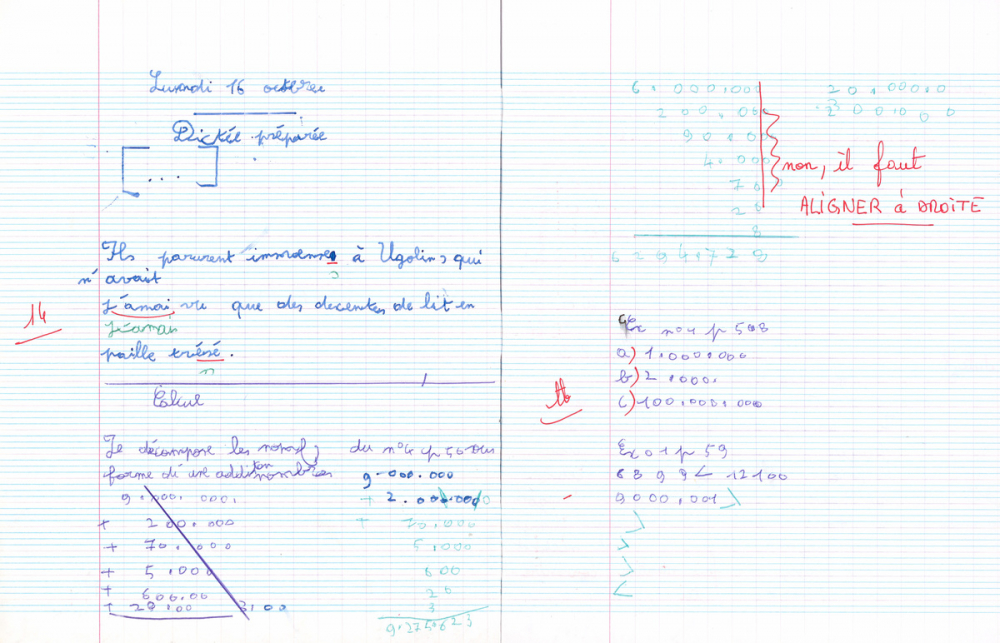 Lundi 16 octobre
Dictée préparée
[...]
Ils parurent immense à Ugolin, qui
n'avait
jamai vu que des decentes de lit en
jamai
paille trésé.
n
14
Calcul
Je décompose les nomb du n°4 p 50 sous
forme di une addition nombres
9.000.000
9.000.000.
+ 2.000.000
+ 200.000
+ 70.000
+ 70.000
5.000
+ 5.000
600
+ 600.00
20
+ 20.00 3.00
3
9.275.623
6.000.000 20.000.0
200.00 20000 0
90.00
4.000
non, il faut
70
ALIGNER à DROITE
20
8
6294729
Ex n°4 p 58
a) 1.000.000
b) 2.000.
c) 100.000.000
16
Ex 01 p 59
6899 < 12100
- 9000.001 >
>
>
>
<